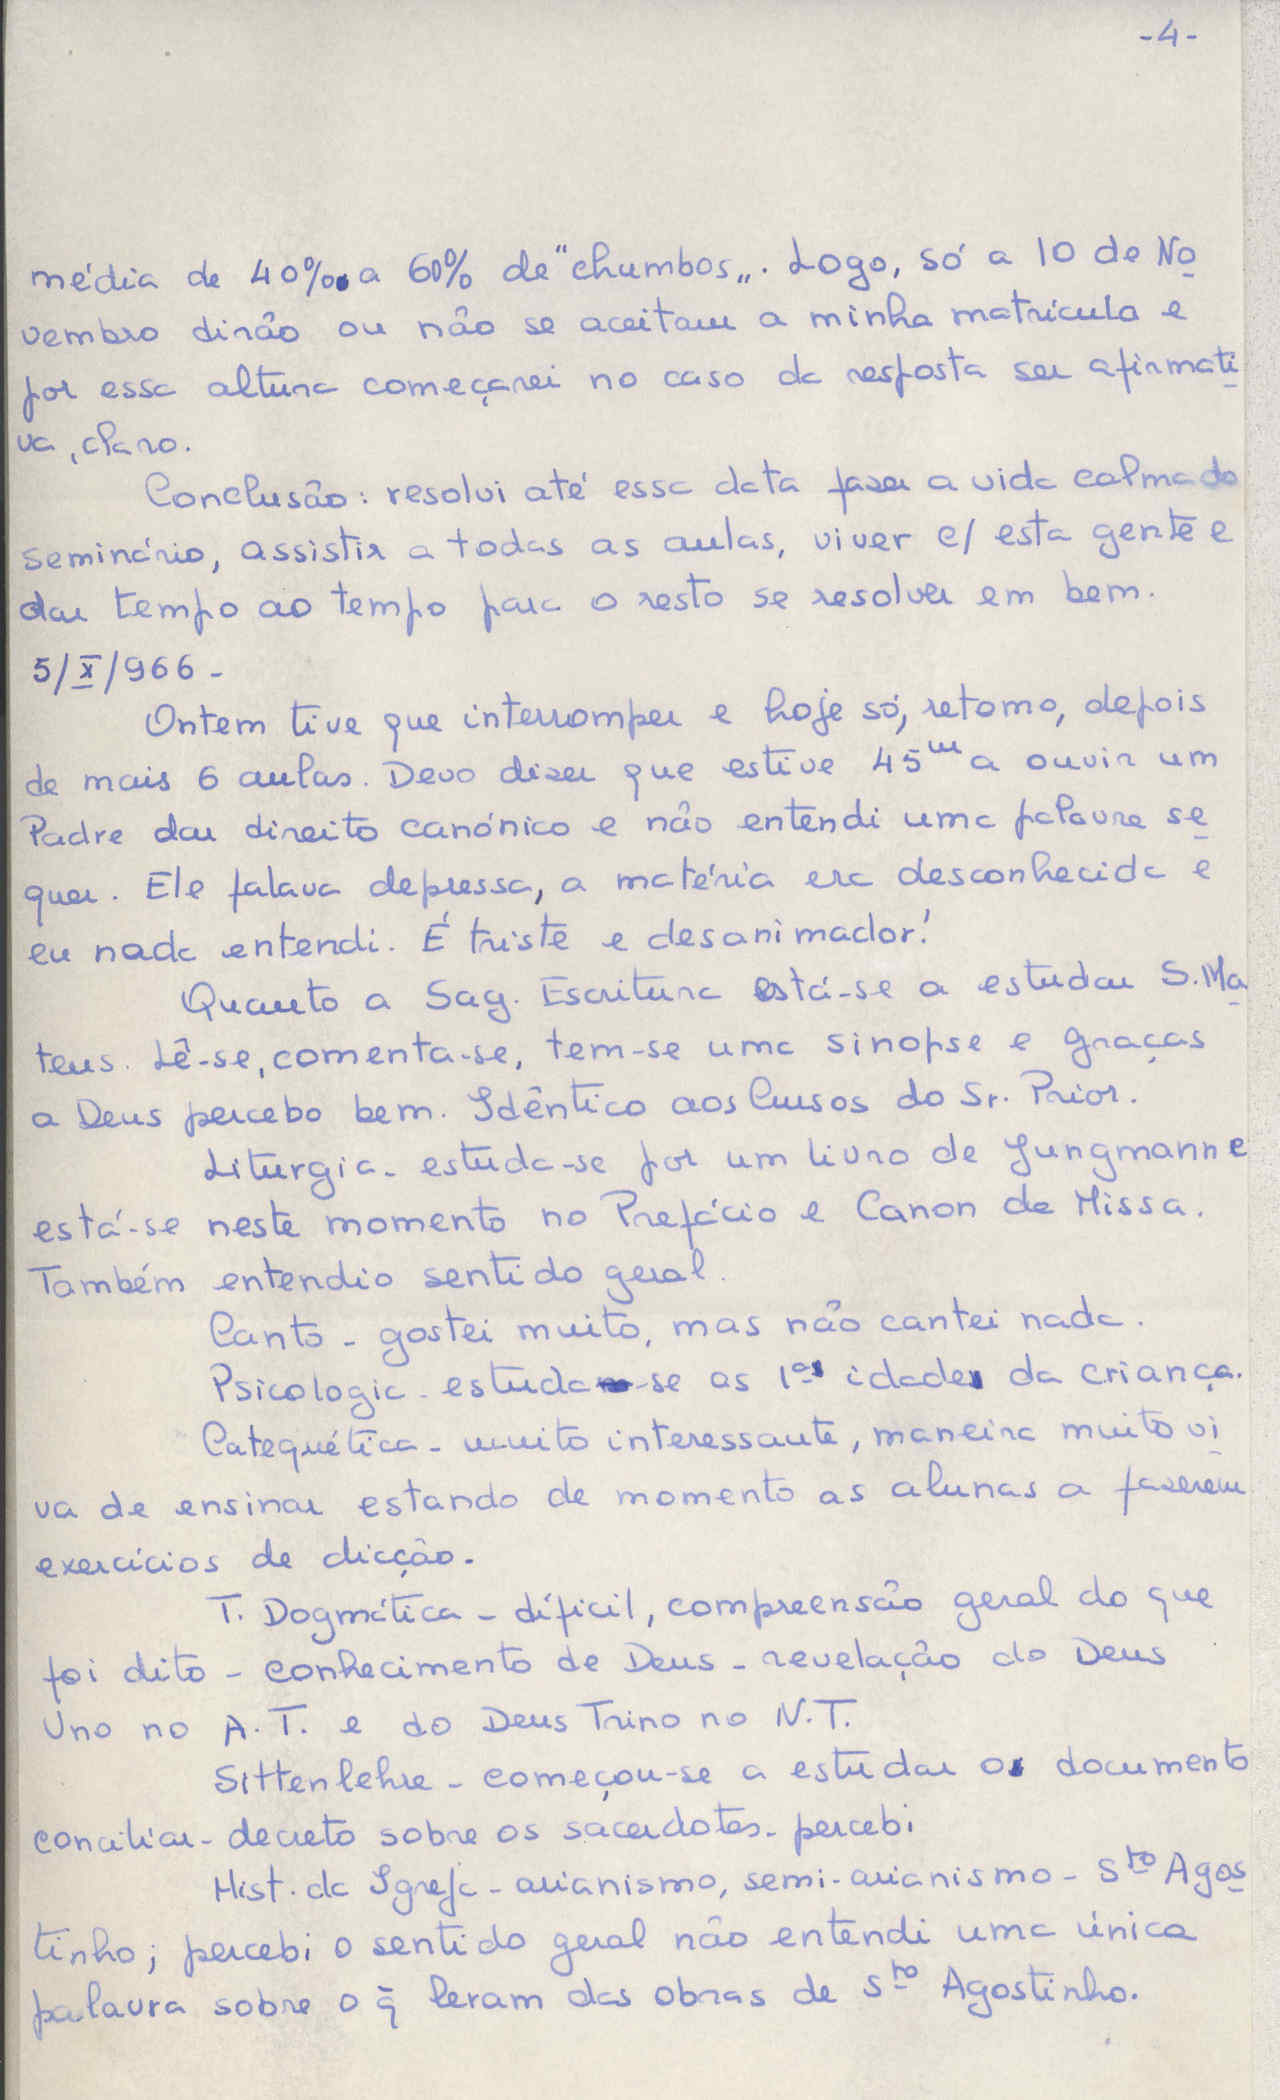 -4-
média de 40% a 60% de "chumbos„. Logo, só a 10 de No
vembro dirão ou não se aceitam a minha matrícula e
por essa altura começarei no caso da resposta ser afirmati
va, claro.
Conclusão: resolvi até essa data fazer a vida calma do
seminário, assistir a todas as aulas, viver c/ esta gente e
dar tempo ao tempo para o resto se resolver em bem.
5/X/966-
Ontem tive que interromper e hoje só, retomo, depois
de mais 6 aulas. Devo dizer que estive 45m a ouvir um
Padre dar direito canónico e não entendi uma palavra se
quer. Ele falava depressa, a matéria era desconhecida e
eu nada entendi. É triste e desanimador!
Quanto a Sag. Escritura está-se a estudar S. Ma
teus. Lê-se, comenta-se, tem-se uma sinopse e graças
a Deus percebo bem. Idêntico aos Cursos do Sr. Prior.
Liturgia - estuda-se por um livro de Jungmann e
está-se neste momento no Prefácio e Canon da Missa.
Também entendi o sentido geral.
Canto - gostei muito, mas não cantei nada.
Psicologia - estuda-se as 1as idades da criança.
Catequética - muito interessante, maneira muito vi
va de ensinar estando de momento as alunas a fazerem
exercícios de dicção.
T. Dogmática - díficil, compreensão geral do que
foi dito - conhecimento de Deus - revelação do Deus
Uno no A.T. e do Deus Trino no N.T.
Sittenlehre - começou-se a estudar o documento
conciliar - decreto sobre os sacerdotes - percebi
Hist. da Igreja - arianismo, semi-arianismo - Sto Agos
tinho; percebi o sentido geral não entendi uma única
palavra sobre o q̃ leram das obras de Sto Agostinho.